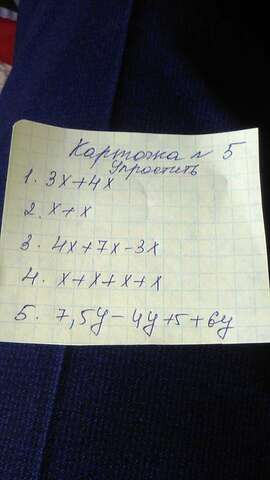 Карточка № 5
Упростить
1. 3x+4x
2. x+x
3. 4x+7x-3x
4. x+x+x+x
5. 7,5y-4y+5+6y